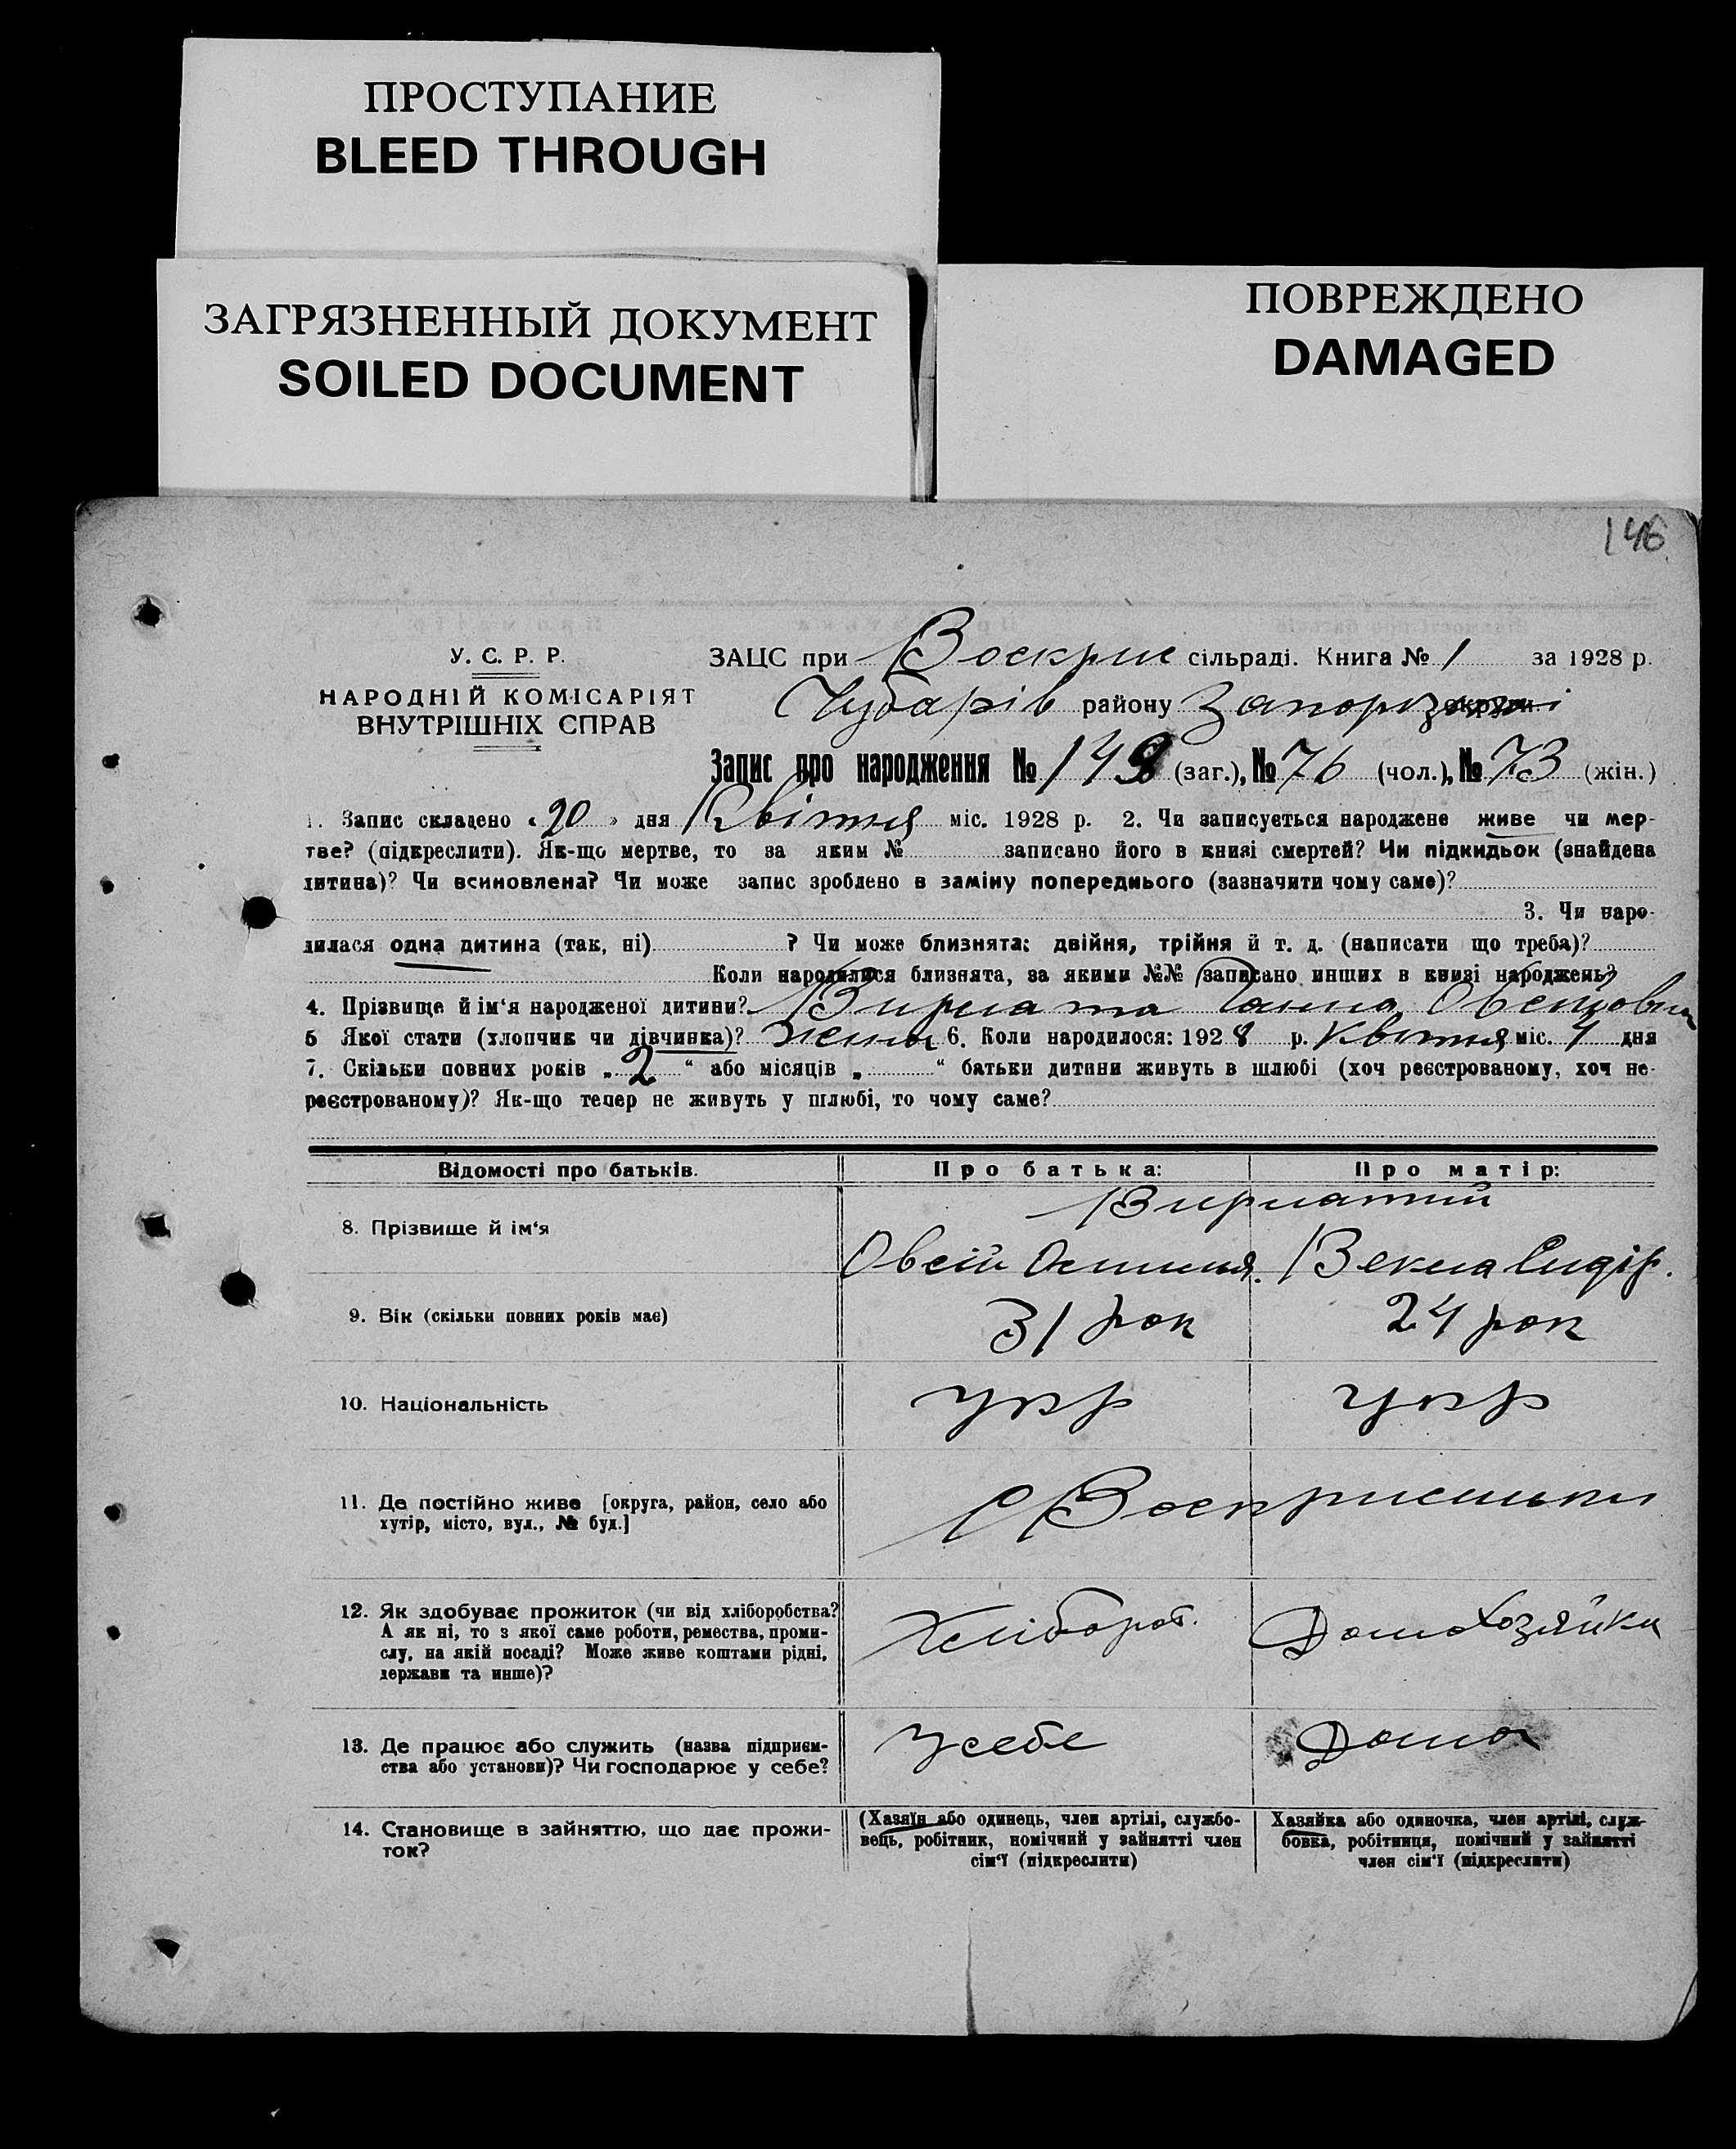 ПРОСТУПАНИЕ
BLEED THROUGH
ЗАГРЯЗНЕННЫЙ ДОКУМЕНТ
SOILED DOCUMENT
ПОВРЕЖДЕНО
DAMAGED
146
У. С. Р. Р.
НАРОДНІЙ КОМІСАРІЯТ
ВНУТРІШНІХ СПРАВ
ЗАЦС при Воскрис сільраді. Книга № 1 за 1928 р.
Чубарів району Запорізькі округи
Запис про народження № 149 (заг.), № 76 (чол.), № 73 (жін.)
1. Запис складено « 20 » дня Квітня міс. 1928 р. 2. Чи записується народжене живе чи мер-
тве? (підкреслити). Як-що мертве, то за яким № записано його в книзі смертей? Чи підкидьок (знайдена
дитина)? Чи всиновлена? Чи може запис зроблено в заміну попереднього (зазначити чому саме)?
3. Чи наро-
дилася одна дитина (так, ні) ? Чи може близнята: двійня, трійня й т. д. (написати що треба)?
Коли народилися близнята, за якими №№ записано инших в книзі народжень?
4. Прізвище й ім'я народженої дитини? Ганна
5 Якої стати (хлопчик чи дівчинка)? 6. Коли народилося: 1928 р. Квітня міс. 4 дня
7. Скільки повних років „ 2 “ або місяців „ “ батьки дитини живуть в шлюбі (хоч реєстрованому, хоч не-
реєстрованому)? Як-що тепер не живуть у шлюбі, то чому саме?
Відомості про батьків.
Про батька:
Про матір:
8. Прізвище й ім'я
Овсій
Векла Сидір.
9. Вік (скільки повних років має)
31 рок
24 рок
10. Національність
укр
укр
11. Де постійно живе [округа, район, село або
хутір, місто, вул., № буд.]
12. Як здобуває прожиток (чи від хліборобства?
А як ні, то з якої саме роботи, ремества, проми-
слу, на якій посаді? Може живе коштами рідні,
держави та инше)?
Хлібороб.
Домохозяйка
13. Де працює або служить (назва підприєм-
ства або установи)? Чи господарює у себе?
У себе
Дома
14. Становище в зайняттю, що дає прожи-
ток?
(Хазяїн або одинець, член артілі, службо-
вець, робітник, помічний у зайнятті член
сім'ї (підкреслити)
Хазяйка або одиночка, член артілі, служ-
бовка, робітниця, помічний у зайнятті
член сім'ї (підкреслити)